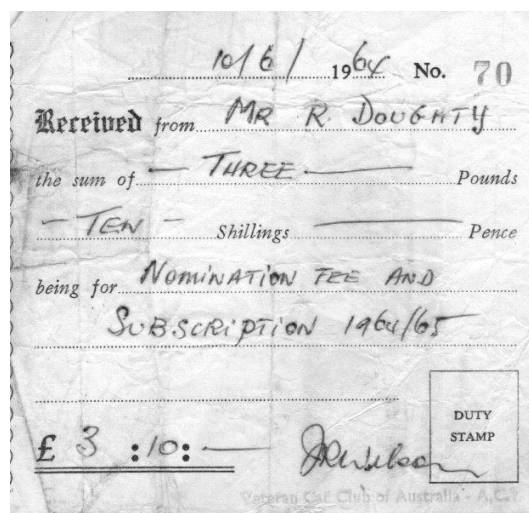 10/6/ 1964 No. 70
Received from MR R. DOUGHTY
the sum of — THREE — Pounds
- TEN - Shillings — Pence
being for NOMINATION FEE AND
SUBSCRIPTION 1964/65
DUTY
STAMP
£ 3 :10: — JRWilson
Veteran Car Club of Australia - A.C.T.